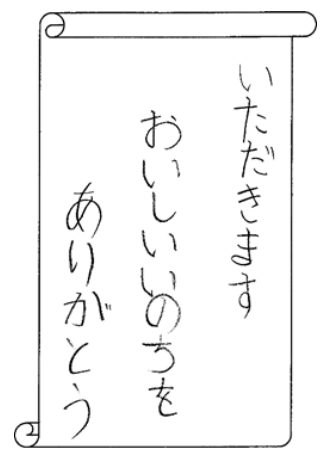 いただきます
おいしいいのちを
ありがとう